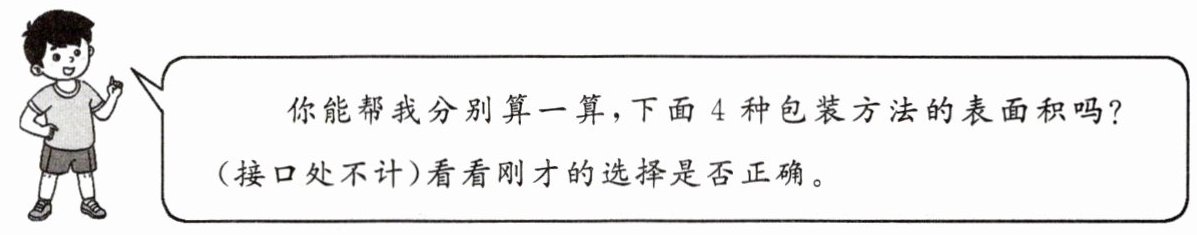 你能帮我分别算一算,下面 4 种包装方法的表面积吗?
(接口处不计)看看刚才的选择是否正确。